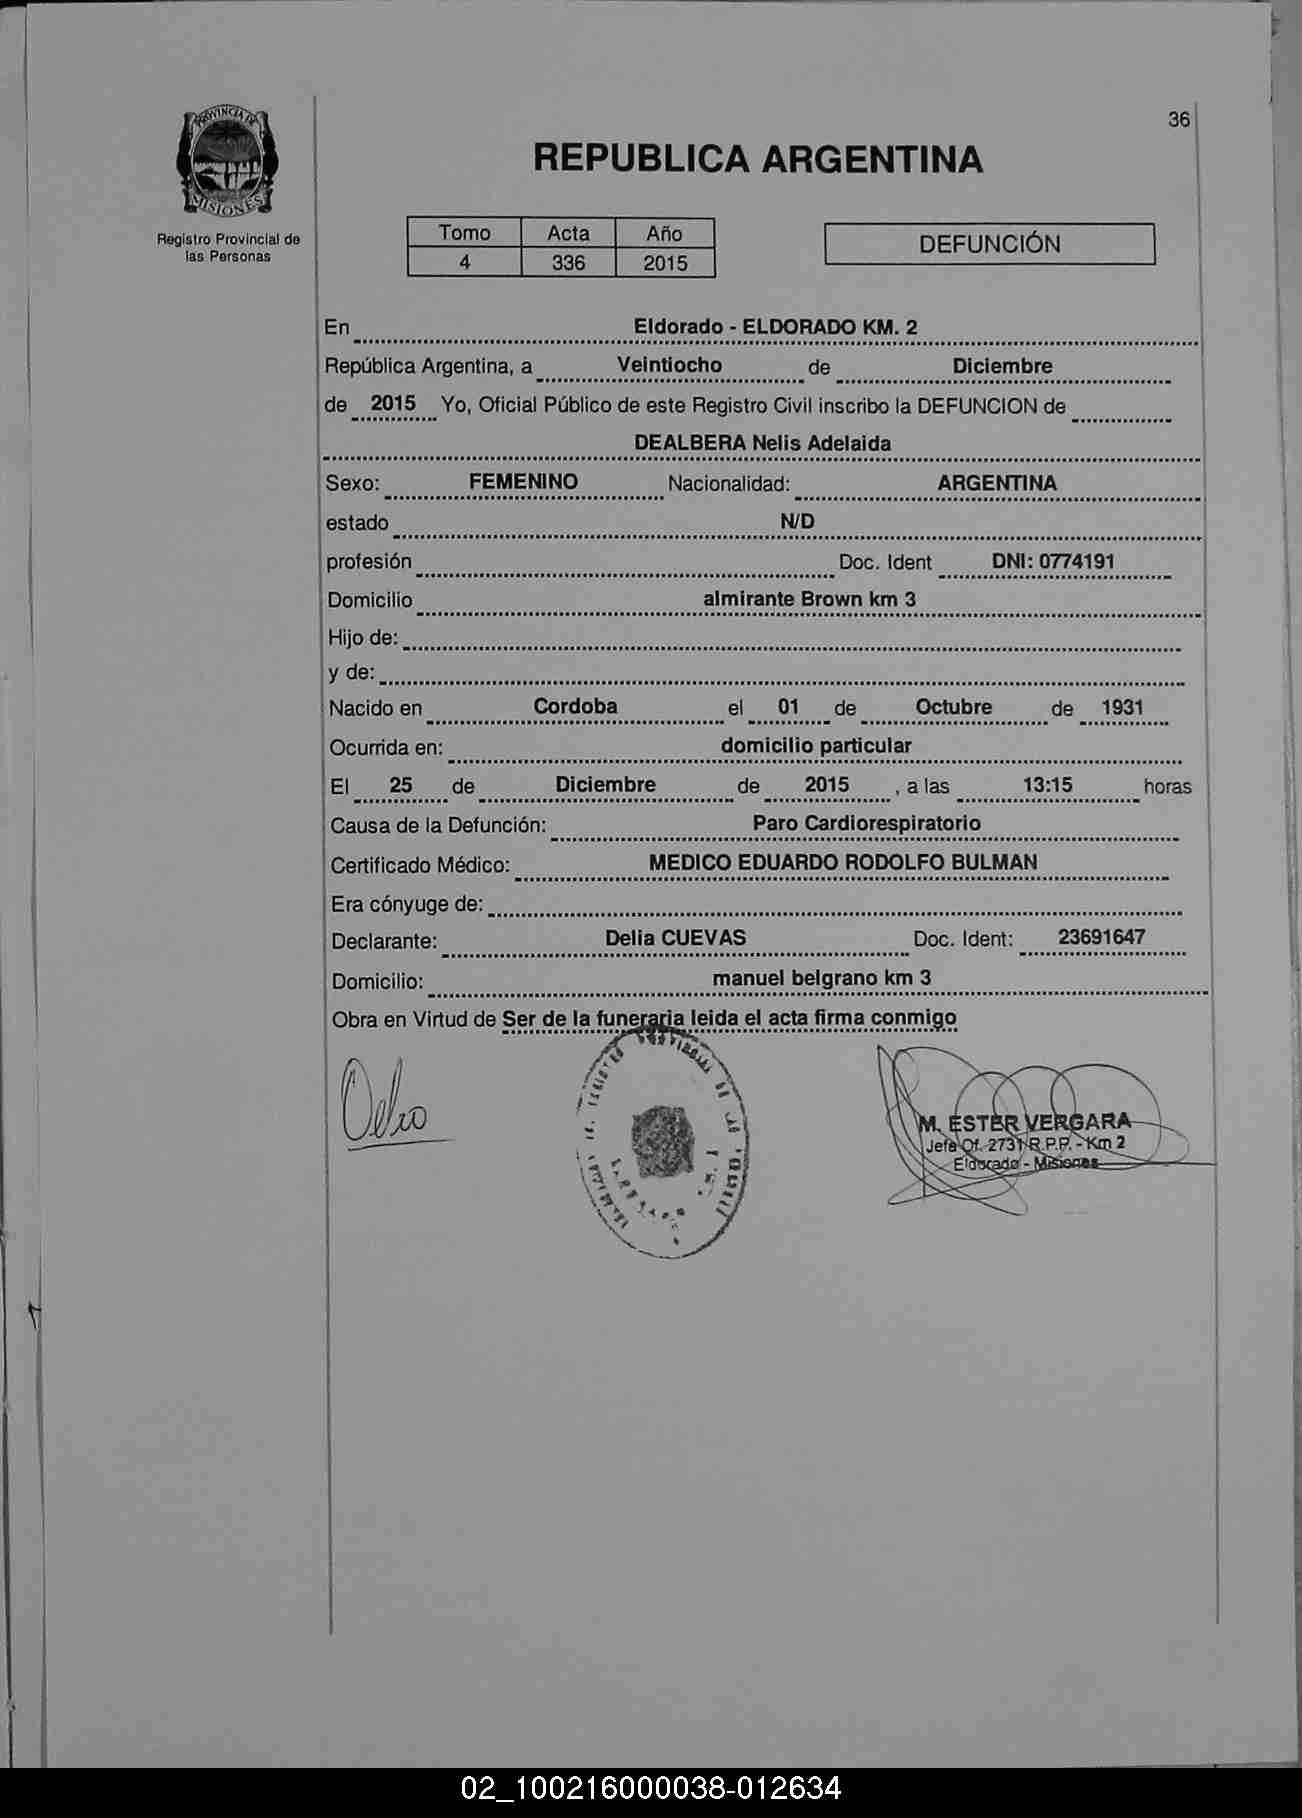 36
PROVINCIA DE
MISIONES
Registro Provincial de
las Personas
REPUBLICA ARGENTINA
Tomo Acta Año
4 336 2015
DEFUNCIÓN
En Eldorado - ELDORADO KM. 2
República Argentina, a Veintiocho de Diciembre
de 2015 Yo, Oficial Público de este Registro Civil inscribo la DEFUNCION de
DEALBERA Nelis Adelaida
Sexo: FEMENINO Nacionalidad: ARGENTINA
estado N/D
profesión Doc. Ident DNI: 0774191
Domicilio almirante Brown km 3
Hijo de:
y de:
Nacido en Cordoba el 01 de Octubre de 1931
Ocurrida en: domicilio particular
El 25 de Diciembre de 2015 , a las 13:15 horas
Causa de la Defunción: Paro Cardiorespiratorio
Certificado Médico: MEDICO EDUARDO RODOLFO BULMAN
Era cónyuge de:
Declarante: Delia CUEVAS Doc. Ident: 23691647
Domicilio: manuel belgrano km 3
Obra en Virtud de Ser de la funeraria leida el acta firma conmigo
M. ESTER VERGARA
Jefe Of. 2731 R.P.P. - Km 2
Eldorado - Misiones
02_100216000038-012634